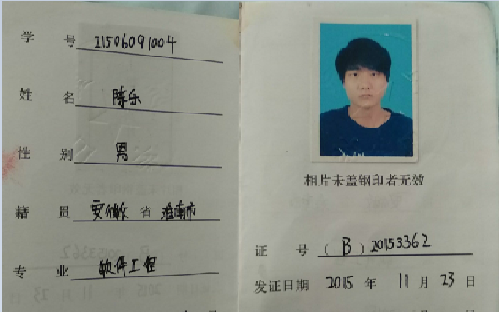 学 号 21506091004
姓 名 陈乐
性 别 男
籍 贯 安徽 省 淮南市
专 业 软件工程
相片未盖钢印者无效
证 号 (B) 20153362
发证日期 2015 年 11 月 23 日